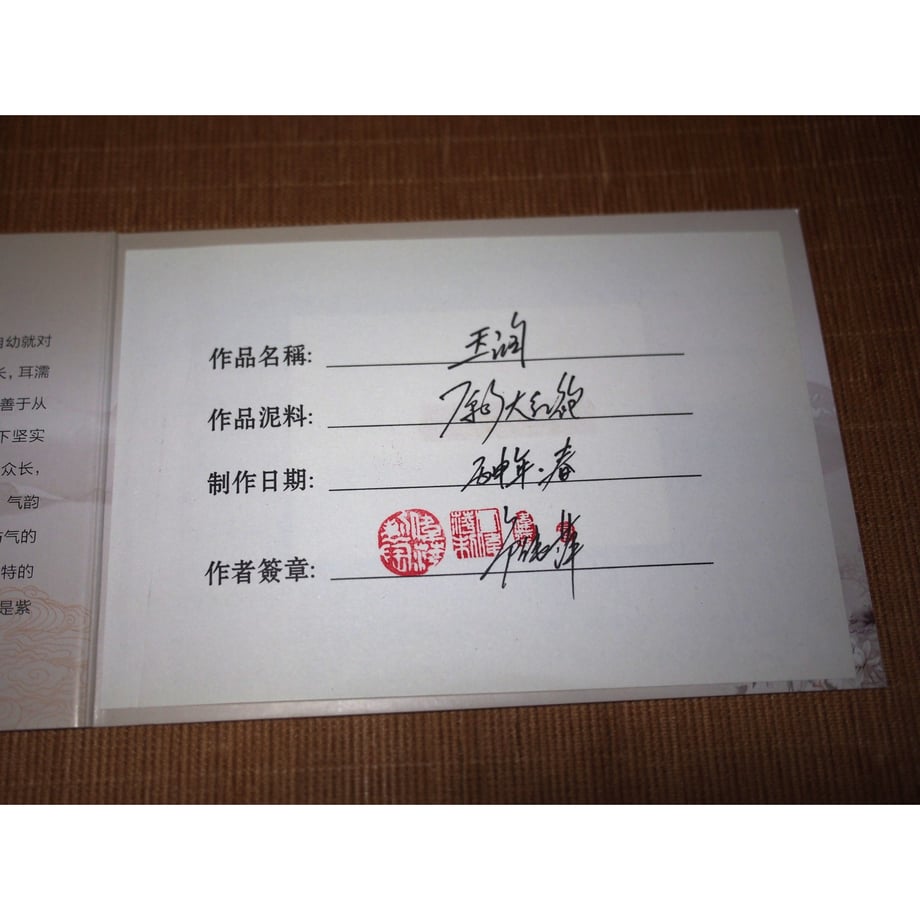 自幼就对
长，耳濡
善于从
下坚实
众长，
气韵
气的
特的
是紫
作品名稱: 玉润
作品泥料: 原矿大红袍
制作日期: 丙申年·春
作者簽章: